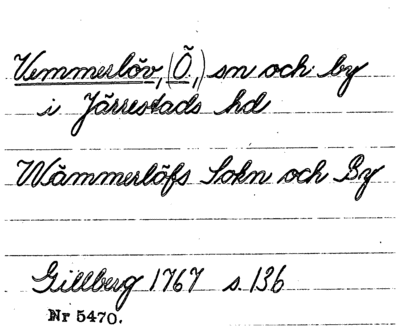 Vemmerlöv, (Ö.,) sn och by
i Järrestads hd
Wämmerlöfs Sokn och By
Gillberg 1767 s. 136
Nr 5470.